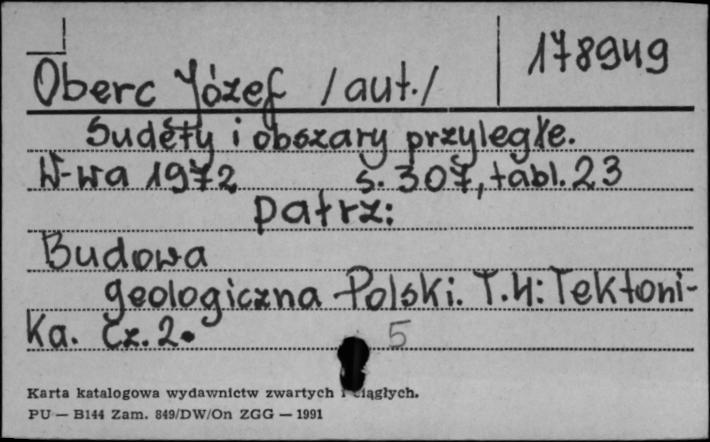 178949
Oberc Józef /aut./
Sudety i obszary przyległe.
W-wa 1972 s. 307, tabl. 23
patrz:
Budowa
geologiczna Polski. T.4: Tektoni-
ka. Cz. 2.
5
Karta katalogowa wydawnictw zwartych i ciągłych.
PU — B144 Zam. 849/DW/On ZGG — 1991